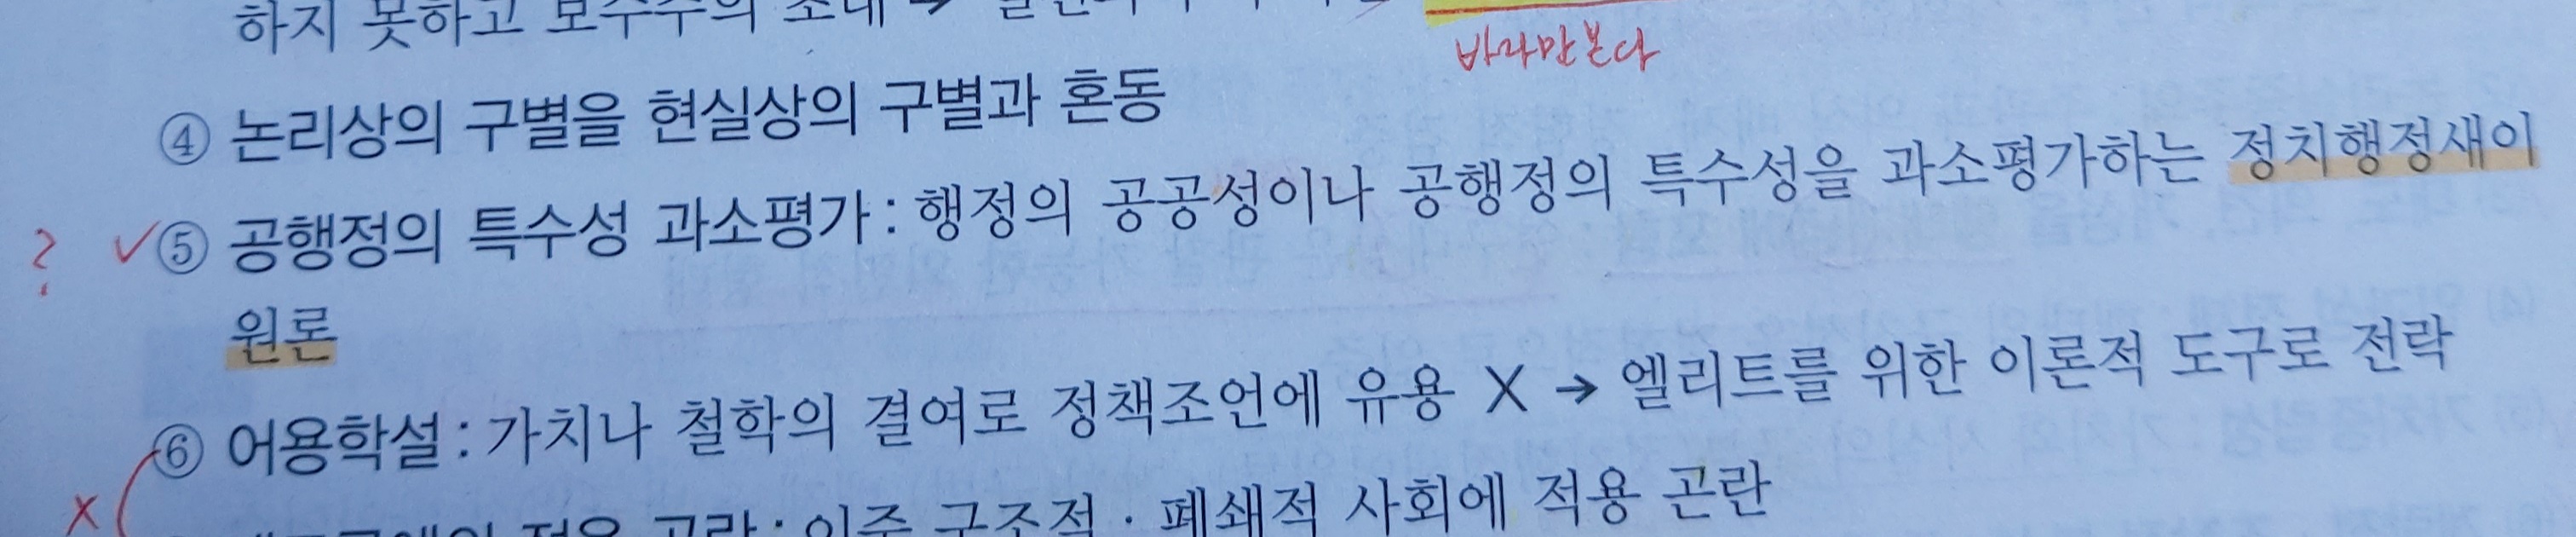 하지 못하고 보수주의 초래 →
바라만본다
④ 논리상의 구별을 현실상의 구별과 혼동
? ✓ ⑤ 공행정의 특수성 과소평가 : 행정의 공공성이나 공행정의 특수성을 과소평가하는 정치행정새이
원론
⑥ 어용학설 : 가치나 철학의 결여로 정책조언에 유용 X → 엘리트를 위한 이론적 도구로 전락
x 적용 곤란 : 이중 구조적 · 폐쇄적 사회에 적용 곤란